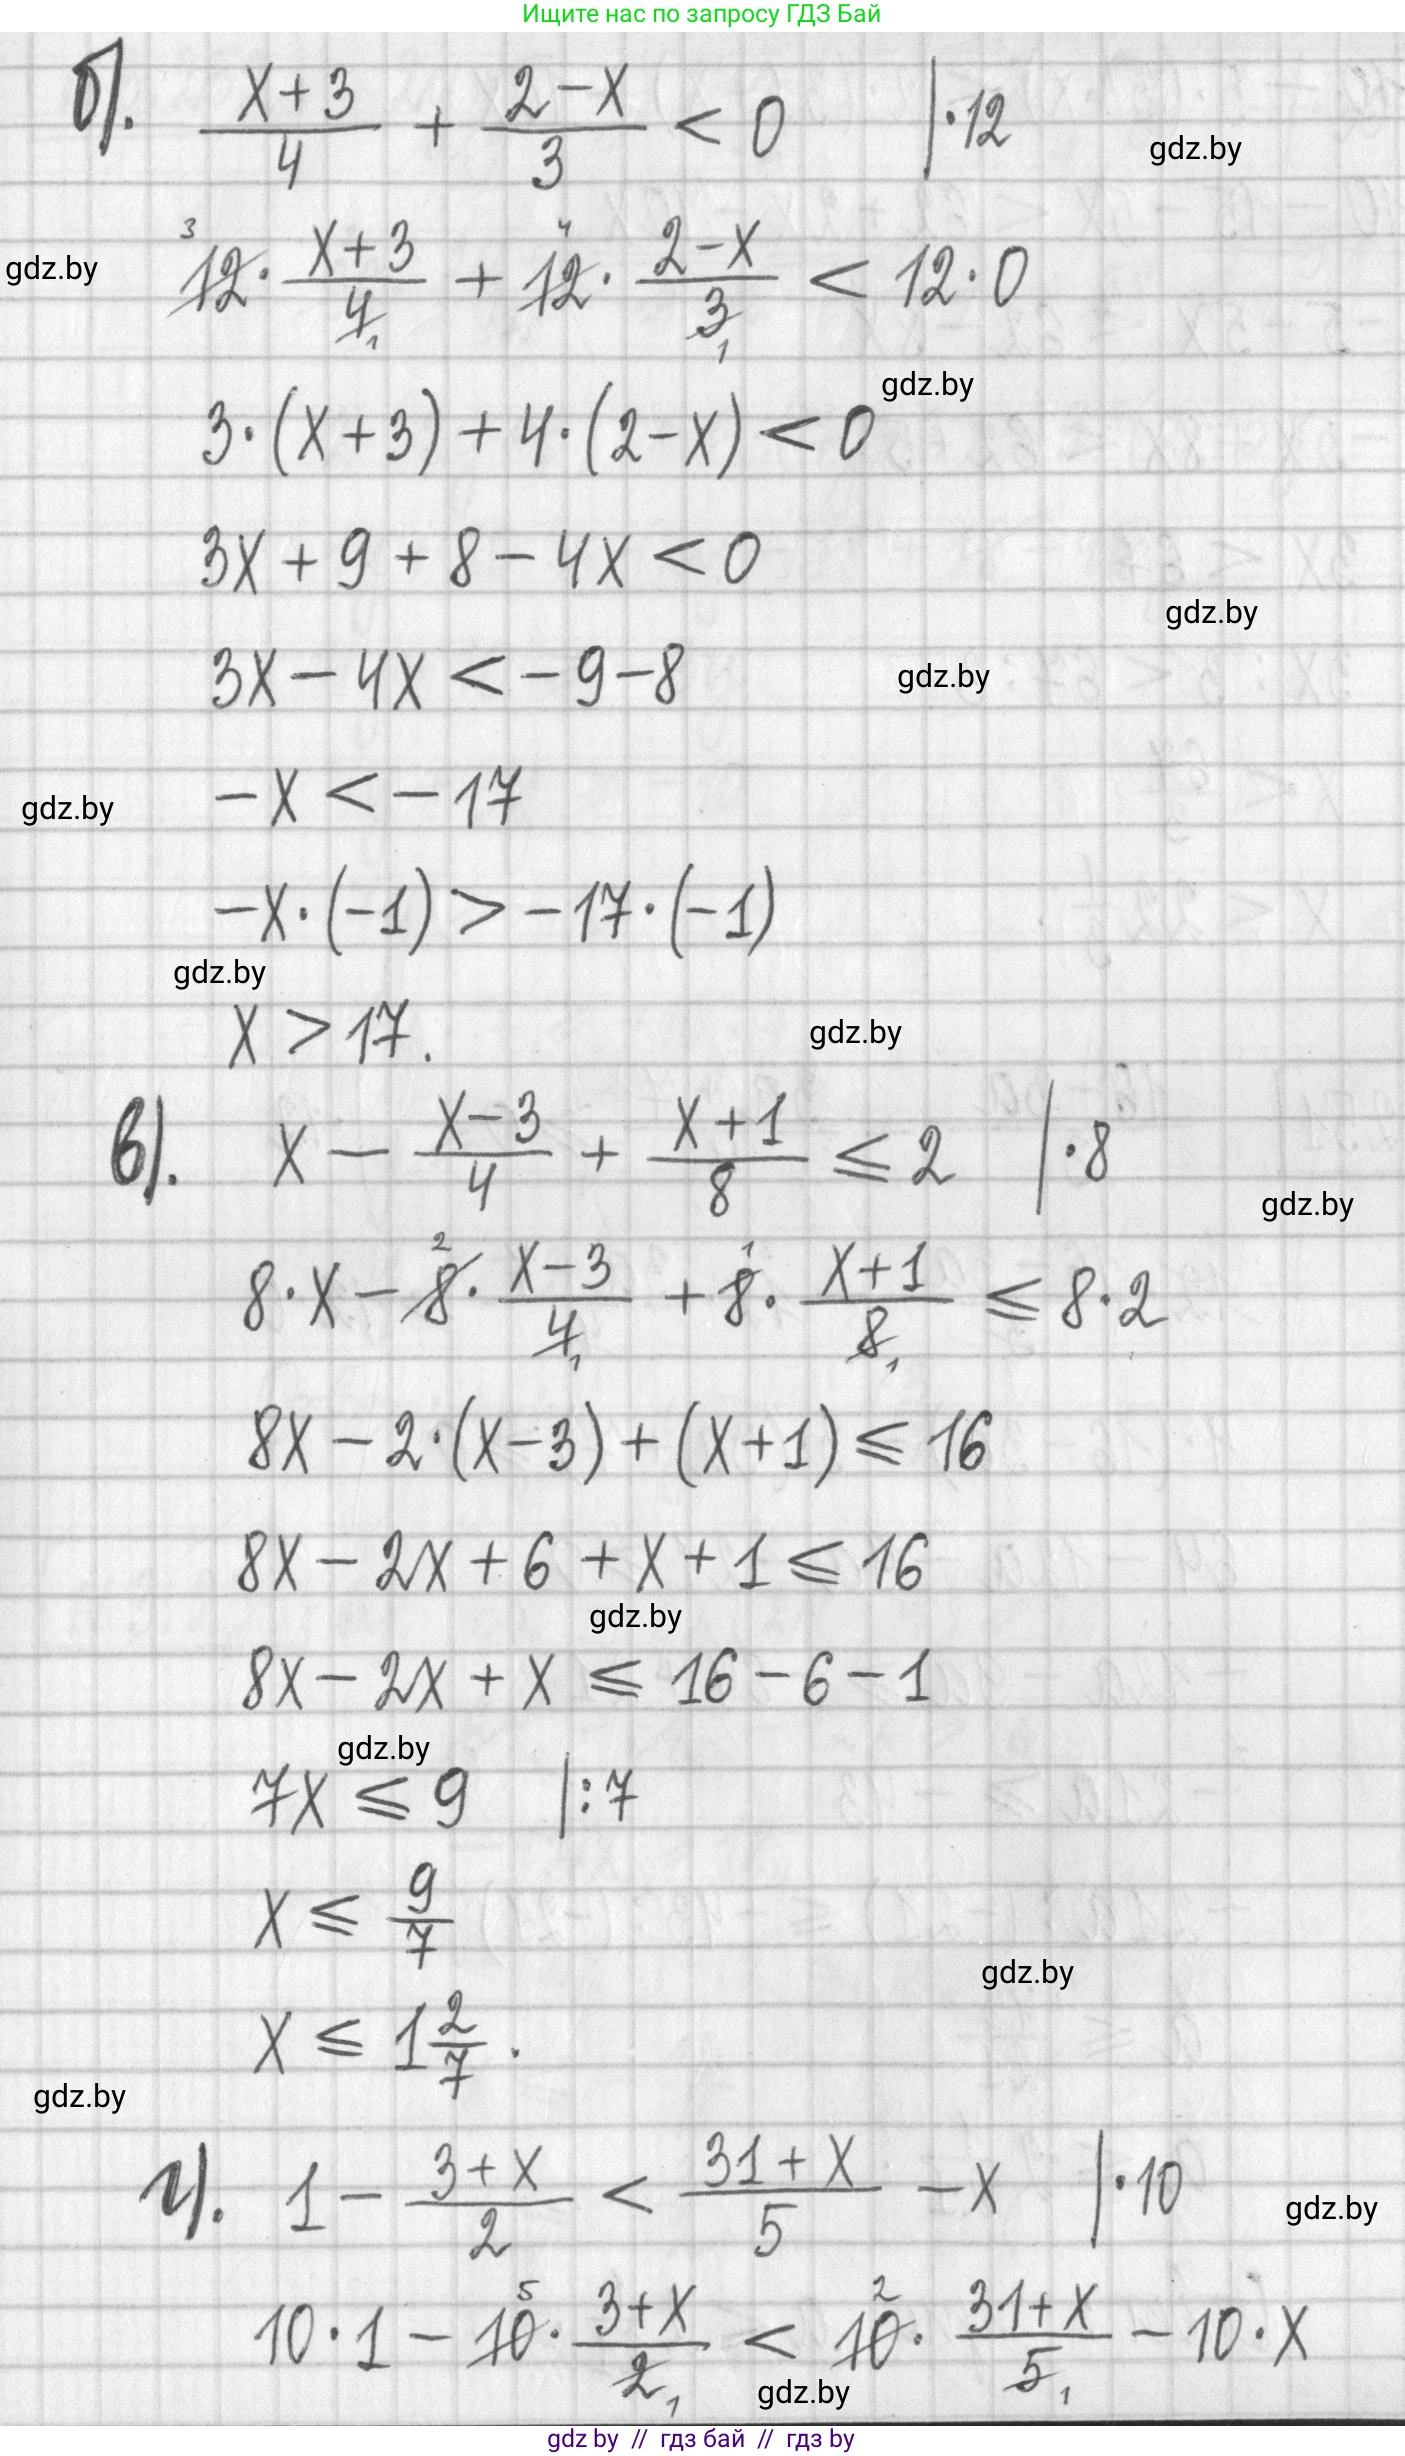 Ищите нас по запросу ГДЗ Бай
б). (x+3)/4 + (2-x)/3 < 0 | ·12
gdz.by
gdz.by
³12 · (x+3)/4₁ + ⁴12 · (2-x)/3₁ < 12·0
gdz.by
3·(x+3)+4·(2-x)<0
3x+9+8-4x<0
gdz.by
3x-4x<-9-8
gdz.by
-x<-17
gdz.by
-x·(-1)>-17·(-1)
gdz.by
x>17.
gdz.by
в). x - (x-3)/4 + (x+1)/8 ⩽ 2 | ·8
gdz.by
8·x - ²8 · (x-3)/4₁ + ¹8 · (x+1)/8₁ ⩽ 8·2
8x-2·(x-3)+(x+1)⩽16
8x-2x+6+x+1⩽16
gdz.by
8x-2x+x⩽16-6-1
gdz.by
7x⩽9 | :7
x ⩽ 9/7
gdz.by
x ⩽ 1 2/7.
gdz.by
г). 1 - (3+x)/2 < (31+x)/5 - x | ·10
gdz.by
10·1 - ⁵10 · (3+x)/2₁ < ²10 · (31+x)/5₁ - 10·x
gdz.by
gdz by // гдз бай // гдз by